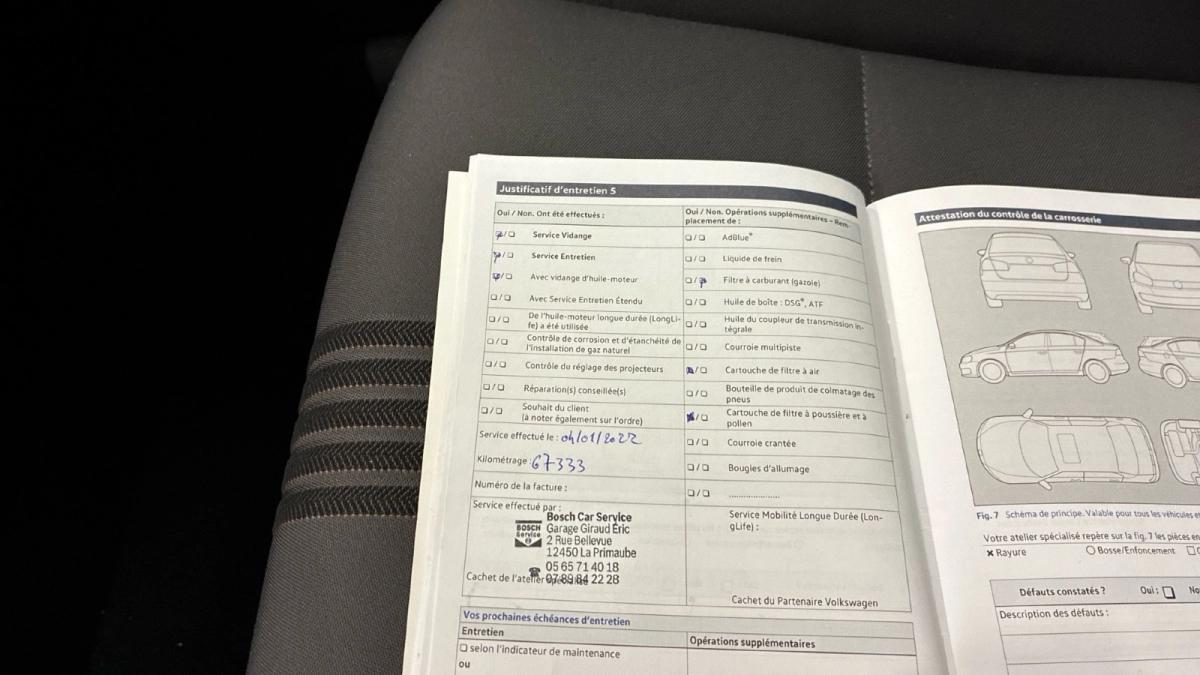 Justificatif d'entretien 5
Oui / Non. Ont été effectués :
☐/☐ Service Vidange
☐/☐ Service Entretien
☐/☐ Avec vidange d'huile-moteur
☐/☐ Avec Service Entretien Étendu
☐/☐ De l'huile-moteur longue durée (LongLi-
fe) a été utilisée
☐/☐ Contrôle de corrosion et d'étanchéité de
l'installation de gaz naturel
☐/☐ Contrôle du réglage des projecteurs
☐/☐ Réparation(s) conseillée(s)
☐/☐ Souhait du client
(à noter également sur l'ordre)
Service effectué le : 04/01/2022
Kilométrage : 67333
Numéro de la facture :
Service effectué par :
BOSCH
Service
Bosch Car Service
Garage Giraud Éric
2 Rue Bellevue
12450 La Primaube
05 65 71 40 18
07 89 84 22 28
Cachet de l'atelier
Oui / Non. Opérations supplémentaires – Rem-
placement de :
☐/☐ AdBlue®
☐/☐ Liquide de frein
☐/☐ Filtre à carburant (gazole)
☐/☐ Huile de boîte : DSG®, ATF
☐/☐ Huile du coupleur de transmission in-
tégrale
☐/☐ Courroie multipiste
☐/☐ Cartouche de filtre à air
☐/☐ Bouteille de produit de colmatage des
pneus
☐/☐ Cartouche de filtre à poussière et à
pollen
☐/☐ Courroie crantée
☐/☐ Bougies d'allumage
☐/☐ .....................
Service Mobilité Longue Durée (Lon-
gLife) :
Cachet du Partenaire Volkswagen
Vos prochaines échéances d'entretien
Entretien
☐ selon l'indicateur de maintenance
ou
Opérations supplémentaires
Attestation du contrôle de la carrosserie
Fig. 7 Schéma de principe. Valable pour tous les véhicules
Votre atelier spécialisé repère sur la fig. 7 les pièces
✖ Rayure ○ Bosse/Enfoncement ☐
Défauts constatés ? Oui : ☐
Description des défauts :